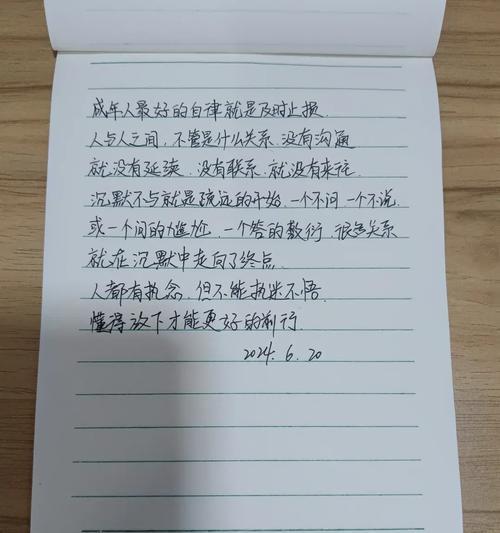 成年人最好的自律就是及时止损.
人与人之间,不管是什么关系.没有沟通
就没有延续.没有联系.就没有来往
沉默不与就是疏远的开始.一个不问一个不说.
或一个问的尴尬.一个答的敷衍.很多关系
就在沉默中走向了终点.
人都有执念.但不能执迷不悟.
懂得放下才能更好的前行.
2024.6.20